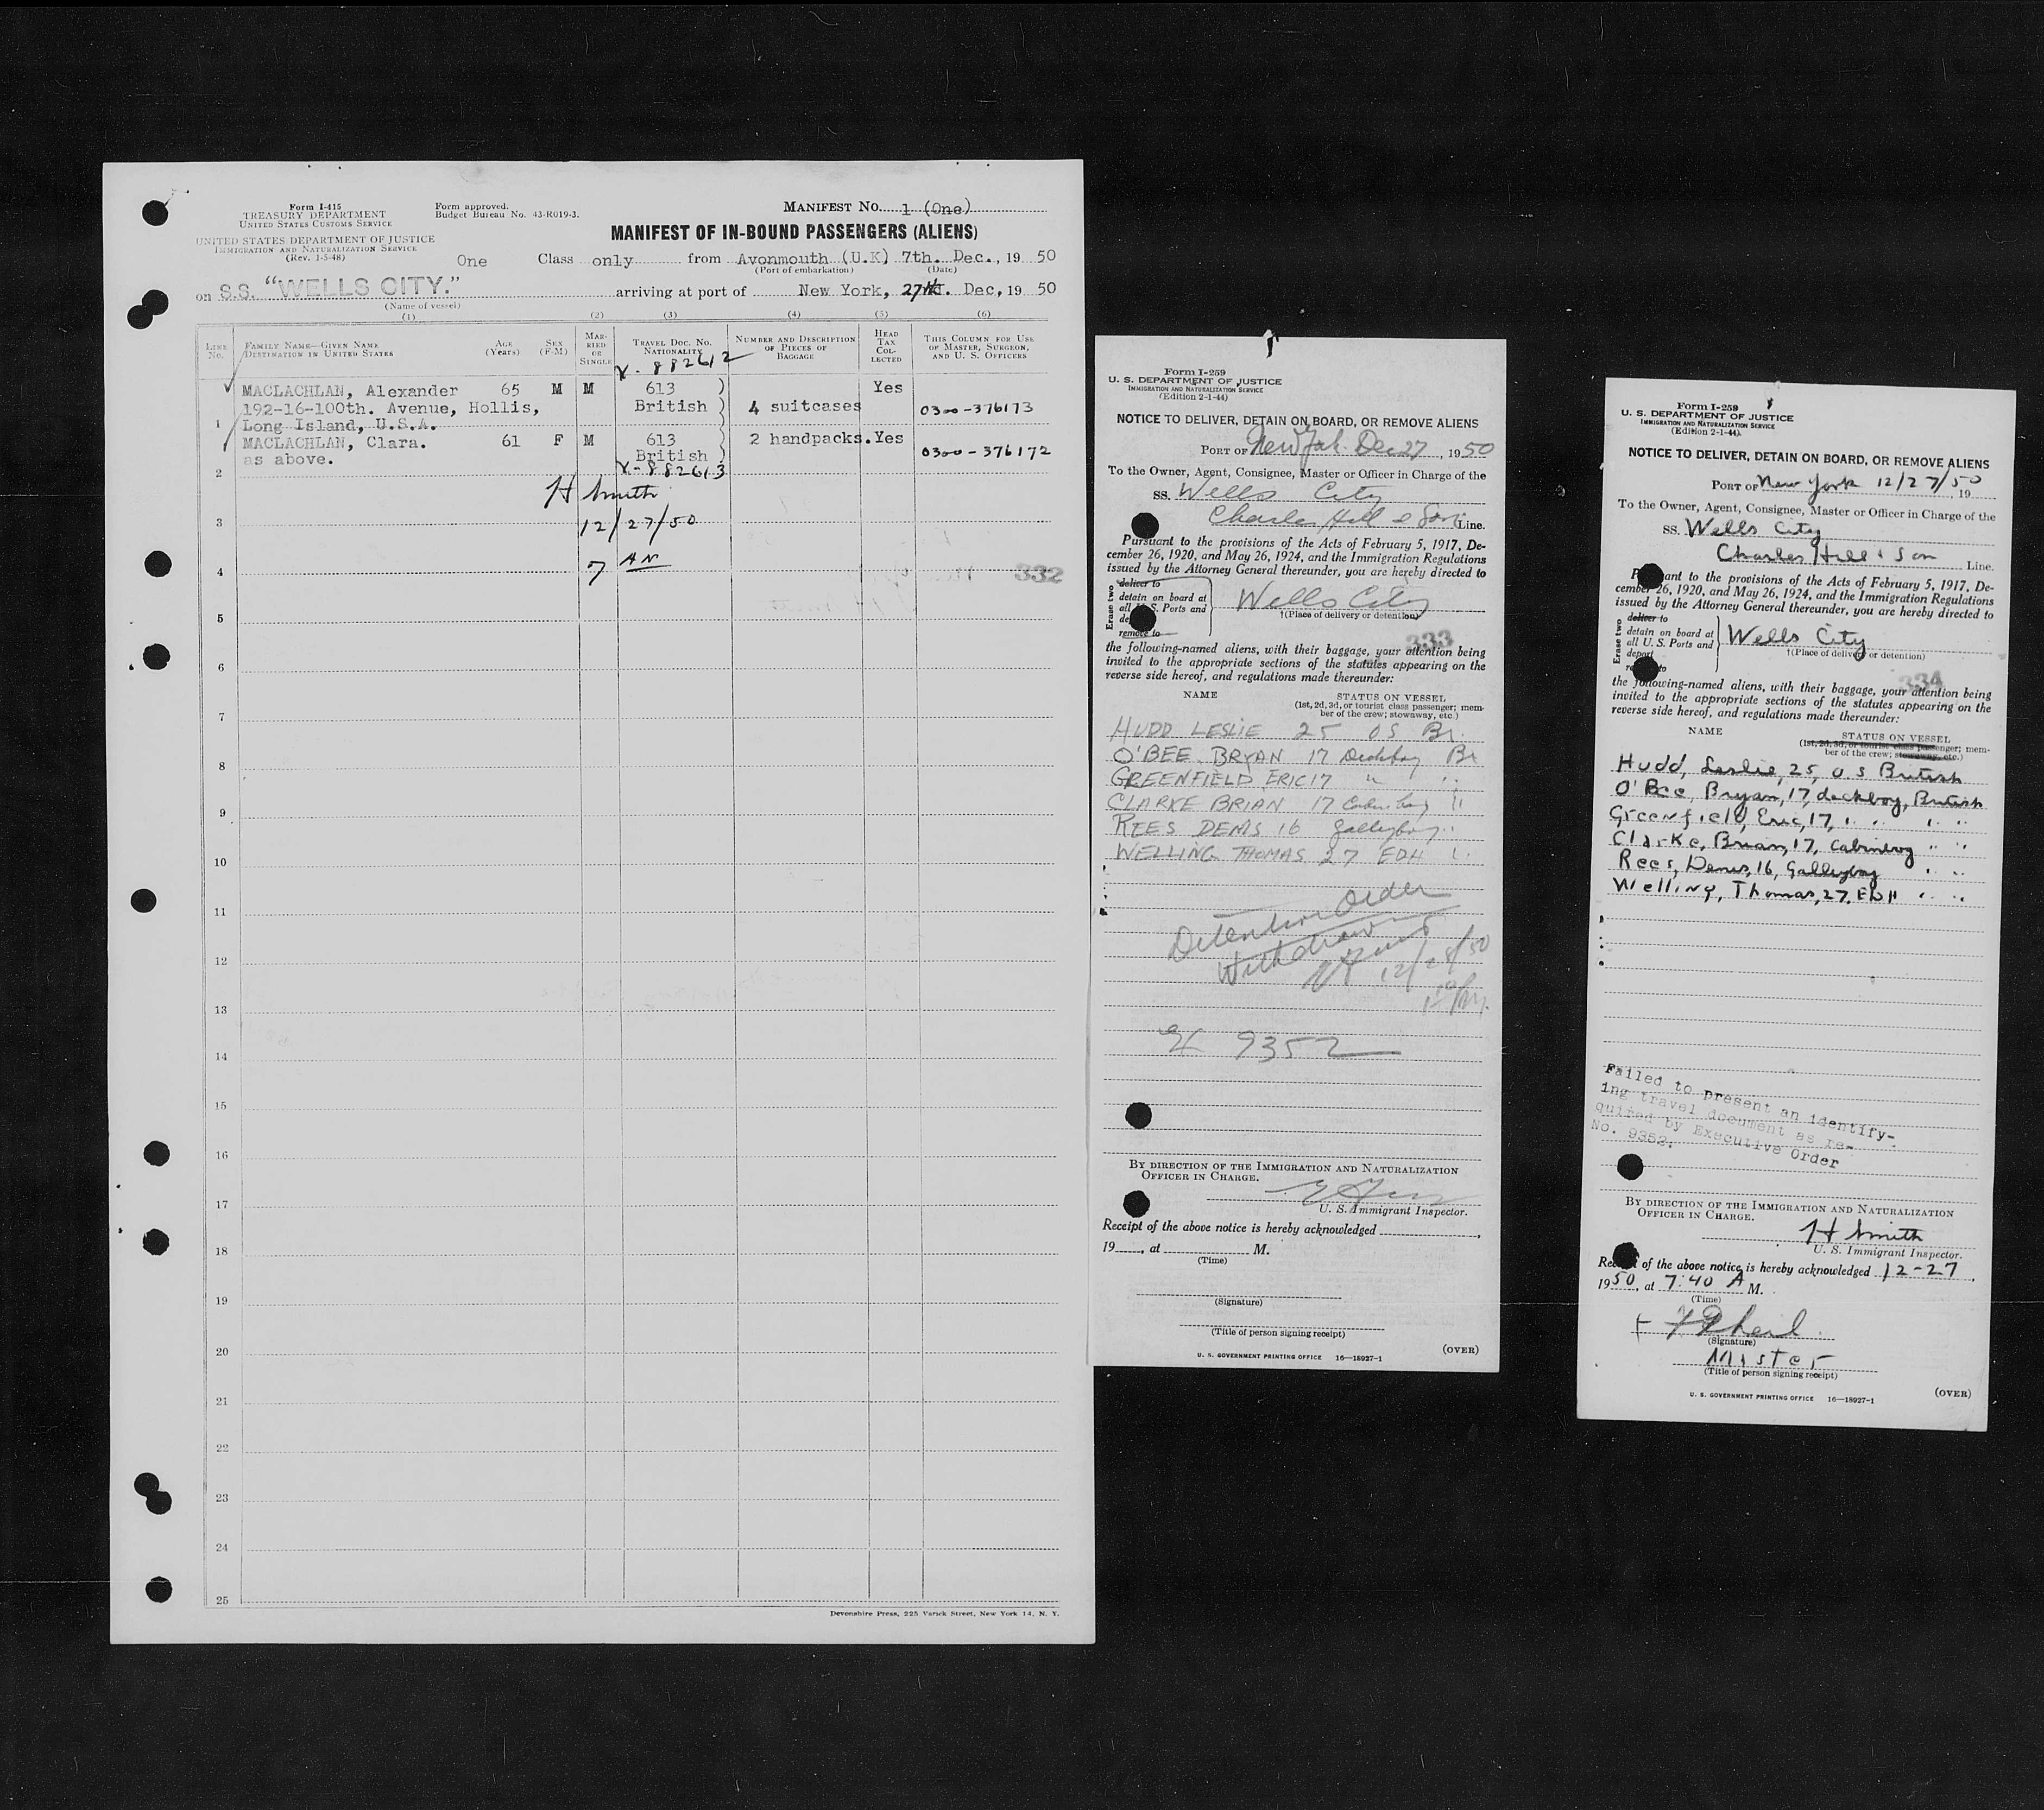 Form I-415
TREASURY DEPARTMENT
UNITED STATES CUSTOMS SERVICE
UNITED STATES DEPARTMENT OF JUSTICE
IMMIGRATION AND NATURALIZATION SERVICE
(Rev. 1-5-48)
Form approved.
Budget Bureau No. 43-R019-3.
MANIFEST No. 1 (One)
MANIFEST OF IN-BOUND PASSENGERS (ALIENS)
One Class only from Avonmouth (U.K) 7th. Dec., 19 50
(Port of embarkation) (Date)
on S.S. "WELLS CITY." arriving at port of New York, 27th. Dec, 19 50
(Name of vessel)
(1) (2) (3) (4) (5) (6)
LINE No. FAMILY NAME—GIVEN NAME DESTINATION IN UNITED STATES AGE (Years) SEX (F-M) MARRIED OR SINGLE TRAVEL DOC. NO. NATIONALITY NUMBER AND DESCRIPTION OF PIECES OF BAGGAGE HEAD TAX COLLECTED THIS COLUMN FOR USE OF MASTER, SURGEON, AND U. S. OFFICERS
V-882612
MACLACHLAN, Alexander 65 M M 613 ) Yes
192-16-100th. Avenue, Hollis, British ) 4 suitcases 0300-376173
1 Long Island, U.S.A.
MACLACHLAN, Clara. 61 F M 613 ) 2 handpacks. Yes
as above. British ) 0300-376172
2 V-882613
H Smith
3 12/27/50
4 7 AN 332
5
6
7
8
9
10
11
12
13
14
15
16
17
18
19
20
21
22
23
24
25
Devonshire Press, 225 Varick Street, New York 14, N. Y.
Form I-259
U. S. DEPARTMENT OF JUSTICE
IMMIGRATION AND NATURALIZATION SERVICE
(Edition 2-1-44)
NOTICE TO DELIVER, DETAIN ON BOARD, OR REMOVE ALIENS
PORT OF New York Dec 27, 1950
To the Owner, Agent, Consignee, Master or Officer in Charge of the
SS. Wells City
Charles Hill & Son Line.
Pursuant to the provisions of the Acts of February 5, 1917, De-
cember 26, 1920, and May 26, 1924, and the Immigration Regulations
issued by the Attorney General thereunder, you are hereby directed to
Erase two
deliver to
detain on board at
all U.S. Ports and
remove to
Wells City
†(Place of delivery or detention)
333
the following-named aliens, with their baggage, your attention being
invited to the appropriate sections of the statutes appearing on the
reverse side hereof, and regulations made thereunder:
NAME STATUS ON VESSEL
(1st, 2d, 3d, or tourist class passenger; mem-
ber of the crew; stowaway, etc.)
HUDD LESLIE 25 OS Br.
O'BEE BRYAN 17 Deckboy Br
GREENFIELD ERIC 17 " "
CLARKE BRIAN 17 Cabinboy "
REES DENIS 16 Galleyboy "
WELLING THOMAS 27 EDH "
Detention Order
Withdrawn
12/28/50
9352
BY DIRECTION OF THE IMMIGRATION AND NATURALIZATION
OFFICER IN CHARGE.
U. S. Immigrant Inspector.
Receipt of the above notice is hereby acknowledged
19 , at M.
(Time)
(Signature)
(Title of person signing receipt)
U. S. GOVERNMENT PRINTING OFFICE 16—18927-1
(OVER)
Form I-259
U. S. DEPARTMENT OF JUSTICE
IMMIGRATION AND NATURALIZATION SERVICE
(Edition 2-1-44)
NOTICE TO DELIVER, DETAIN ON BOARD, OR REMOVE ALIENS
PORT OF New York 12/27/50, 19
To the Owner, Agent, Consignee, Master or Officer in Charge of the
SS. Wells City
Charles Hill & Son Line.
Pursuant to the provisions of the Acts of February 5, 1917, De-
cember 26, 1920, and May 26, 1924, and the Immigration Regulations
issued by the Attorney General thereunder, you are hereby directed to
Erase two
deliver to
detain on board at
all U. S. Ports and
deport
Wells City
†(Place of delivery or detention)
334
the following-named aliens, with their baggage, your attention being
invited to the appropriate sections of the statutes appearing on the
reverse side hereof, and regulations made thereunder:
NAME STATUS ON VESSEL
(1st, 2d, 3d, or tourist class passenger; mem-
ber of the crew; stowaway, etc.)
Hudd, Leslie, 25, OS British
O'Bee, Bryan, 17, deckboy, British
Greenfield, Eric, 17, " " " "
Clarke, Brian, 17, Cabinboy " "
Rees, Denis, 16, Galleyboy " "
Welling, Thomas, 27, EDH " "
Failed to present an identify-
ing travel document as re-
quired by Executive Order
No. 9352.
BY DIRECTION OF THE IMMIGRATION AND NATURALIZATION
OFFICER IN CHARGE.
H Smith
U. S. Immigrant Inspector.
Receipt of the above notice is hereby acknowledged 12-27,
1950, at 7:40 A M.
(Time)
(Signature)
Master
(Title of person signing receipt)
U. S. GOVERNMENT PRINTING OFFICE 16—18927-1
(OVER)